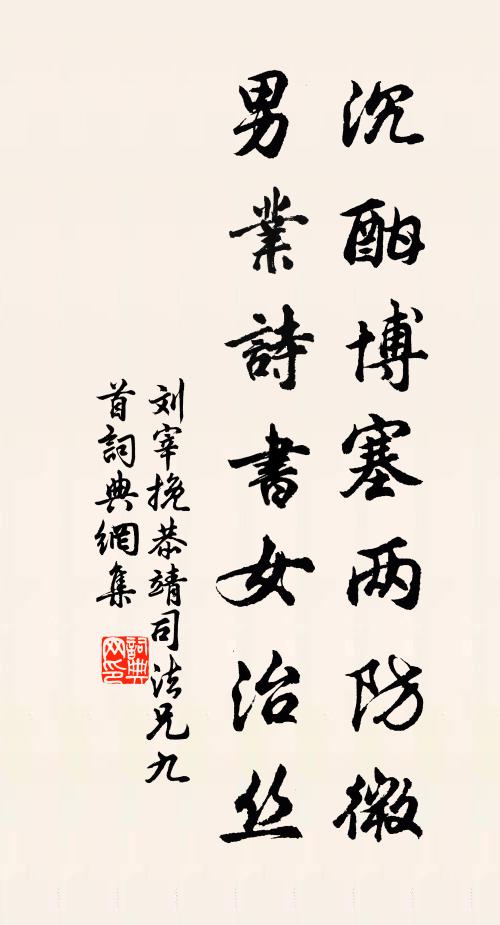 沉酣博塞两防微
男業詩書女治丝
刘宰挽恭靖司法兄九
首詞典網集
詞典
网印